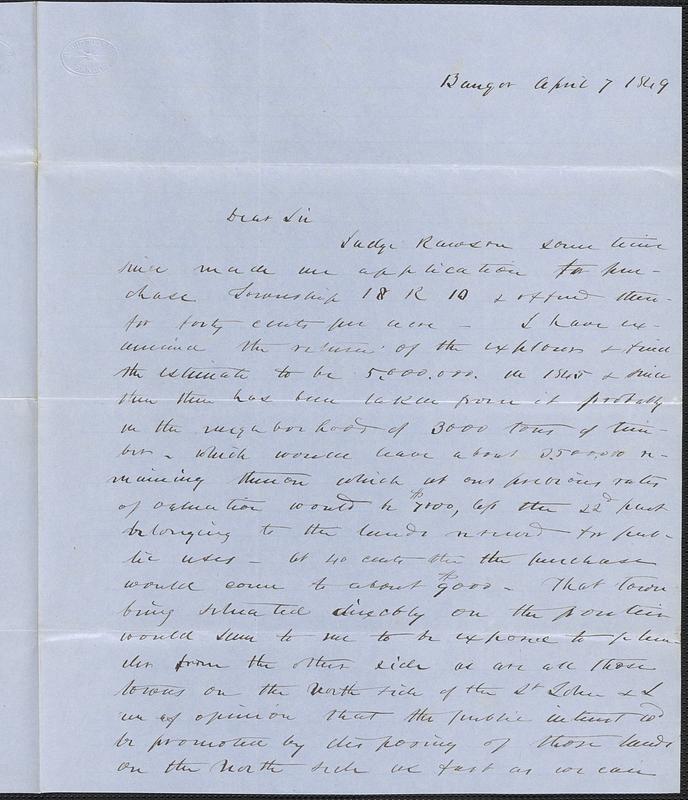 Bangor April 7 1849
Dear Sir
Judge Rawson some time
since made me application to pur-
chase Township 18 R 10 & offered there-
for forty cents per acre - I have ex-
amined the returns of the explorers & find
the estimate to be 5,000,000. in 1845 & since
then there has been taken from it probably
in the neighborhood of 3000 tons of tim-
ber - which would leave about 3,500,000 re-
maining thereon which at our previous rates
of valuation would be $7000, less the 22d part
belonging to the lands reserved for pub-
lic uses - At 40 cents the purchase
would come to about $9000 - That town
being situated directly on the frontier
would seem to me to be exposed to plun-
der from the other side as are all those
towns on the North side of the St John & I
am of opinion that the public interest wd
be promoted by disposing of those lands
on the North side as fast as we can